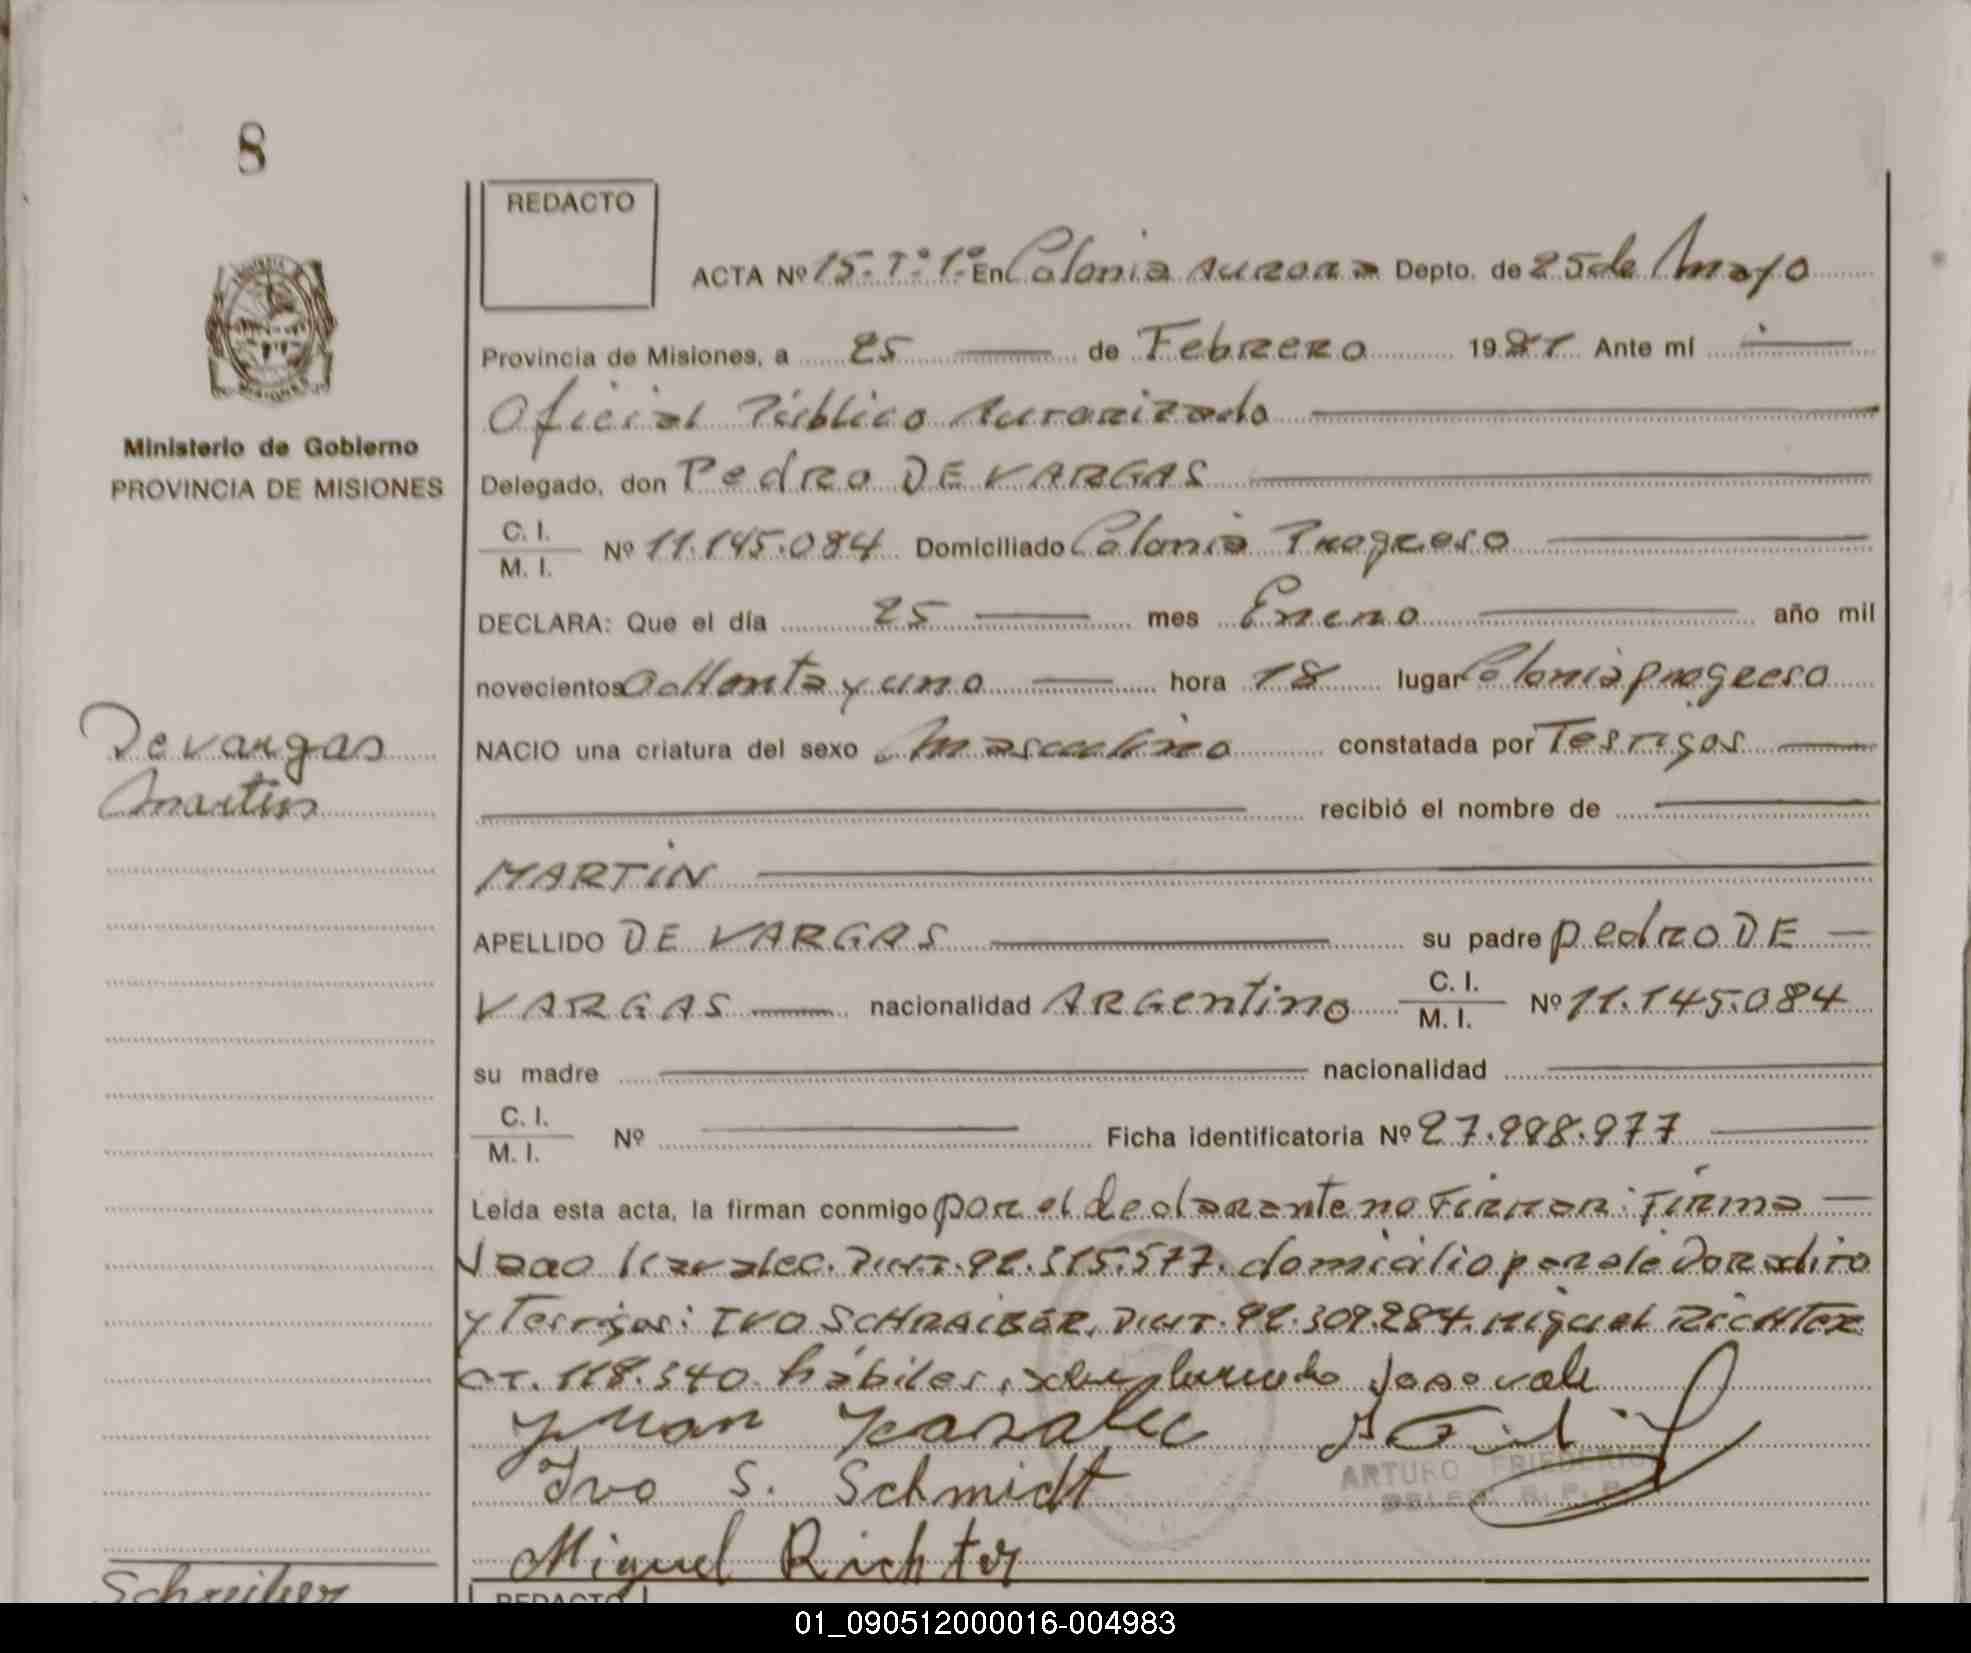 8
REDACTO
ACTA Nº 15. Tº 1º En Colonia Aurora Depto. de 25 de Mayo
Provincia de Misiones, a 25 de Febrero 1981 Ante mí
Oficial Público Autorizado
Ministerio de Gobierno
PROVINCIA DE MISIONES
Delegado, don Pedro DE VARGAS
C. I.
M. I. Nº 11.145.084 Domiciliado Colonia Progreso
DECLARA: Que el día 25 mes Enero año mil
novecientos ochenta y uno hora 18 lugar Colonia progreso
De vargas
Martin
NACIO una criatura del sexo Masculino constatada por Testigos
recibió el nombre de
MARTIN
APELLIDO DE VARGAS su padre pedro DE
VARGAS nacionalidad ARGentino C. I. M. I. Nº 11.145.084
su madre nacionalidad
C. I.
M. I. Nº Ficha identificatoria Nº 27.998.977
Leída esta acta, la firman conmigo por el declarante no Firmar: Firma
92.315.577. domicilio
y Testigos: IVO SCHRAIBER, 92.309.284. Miguel Richter
118.340. hábiles, vale
Juan
Ivo S. Schmidt
ARTURO FRIEDERICH
Miguel Richter
Schreiber
REDACTO
01_090512000016-004983